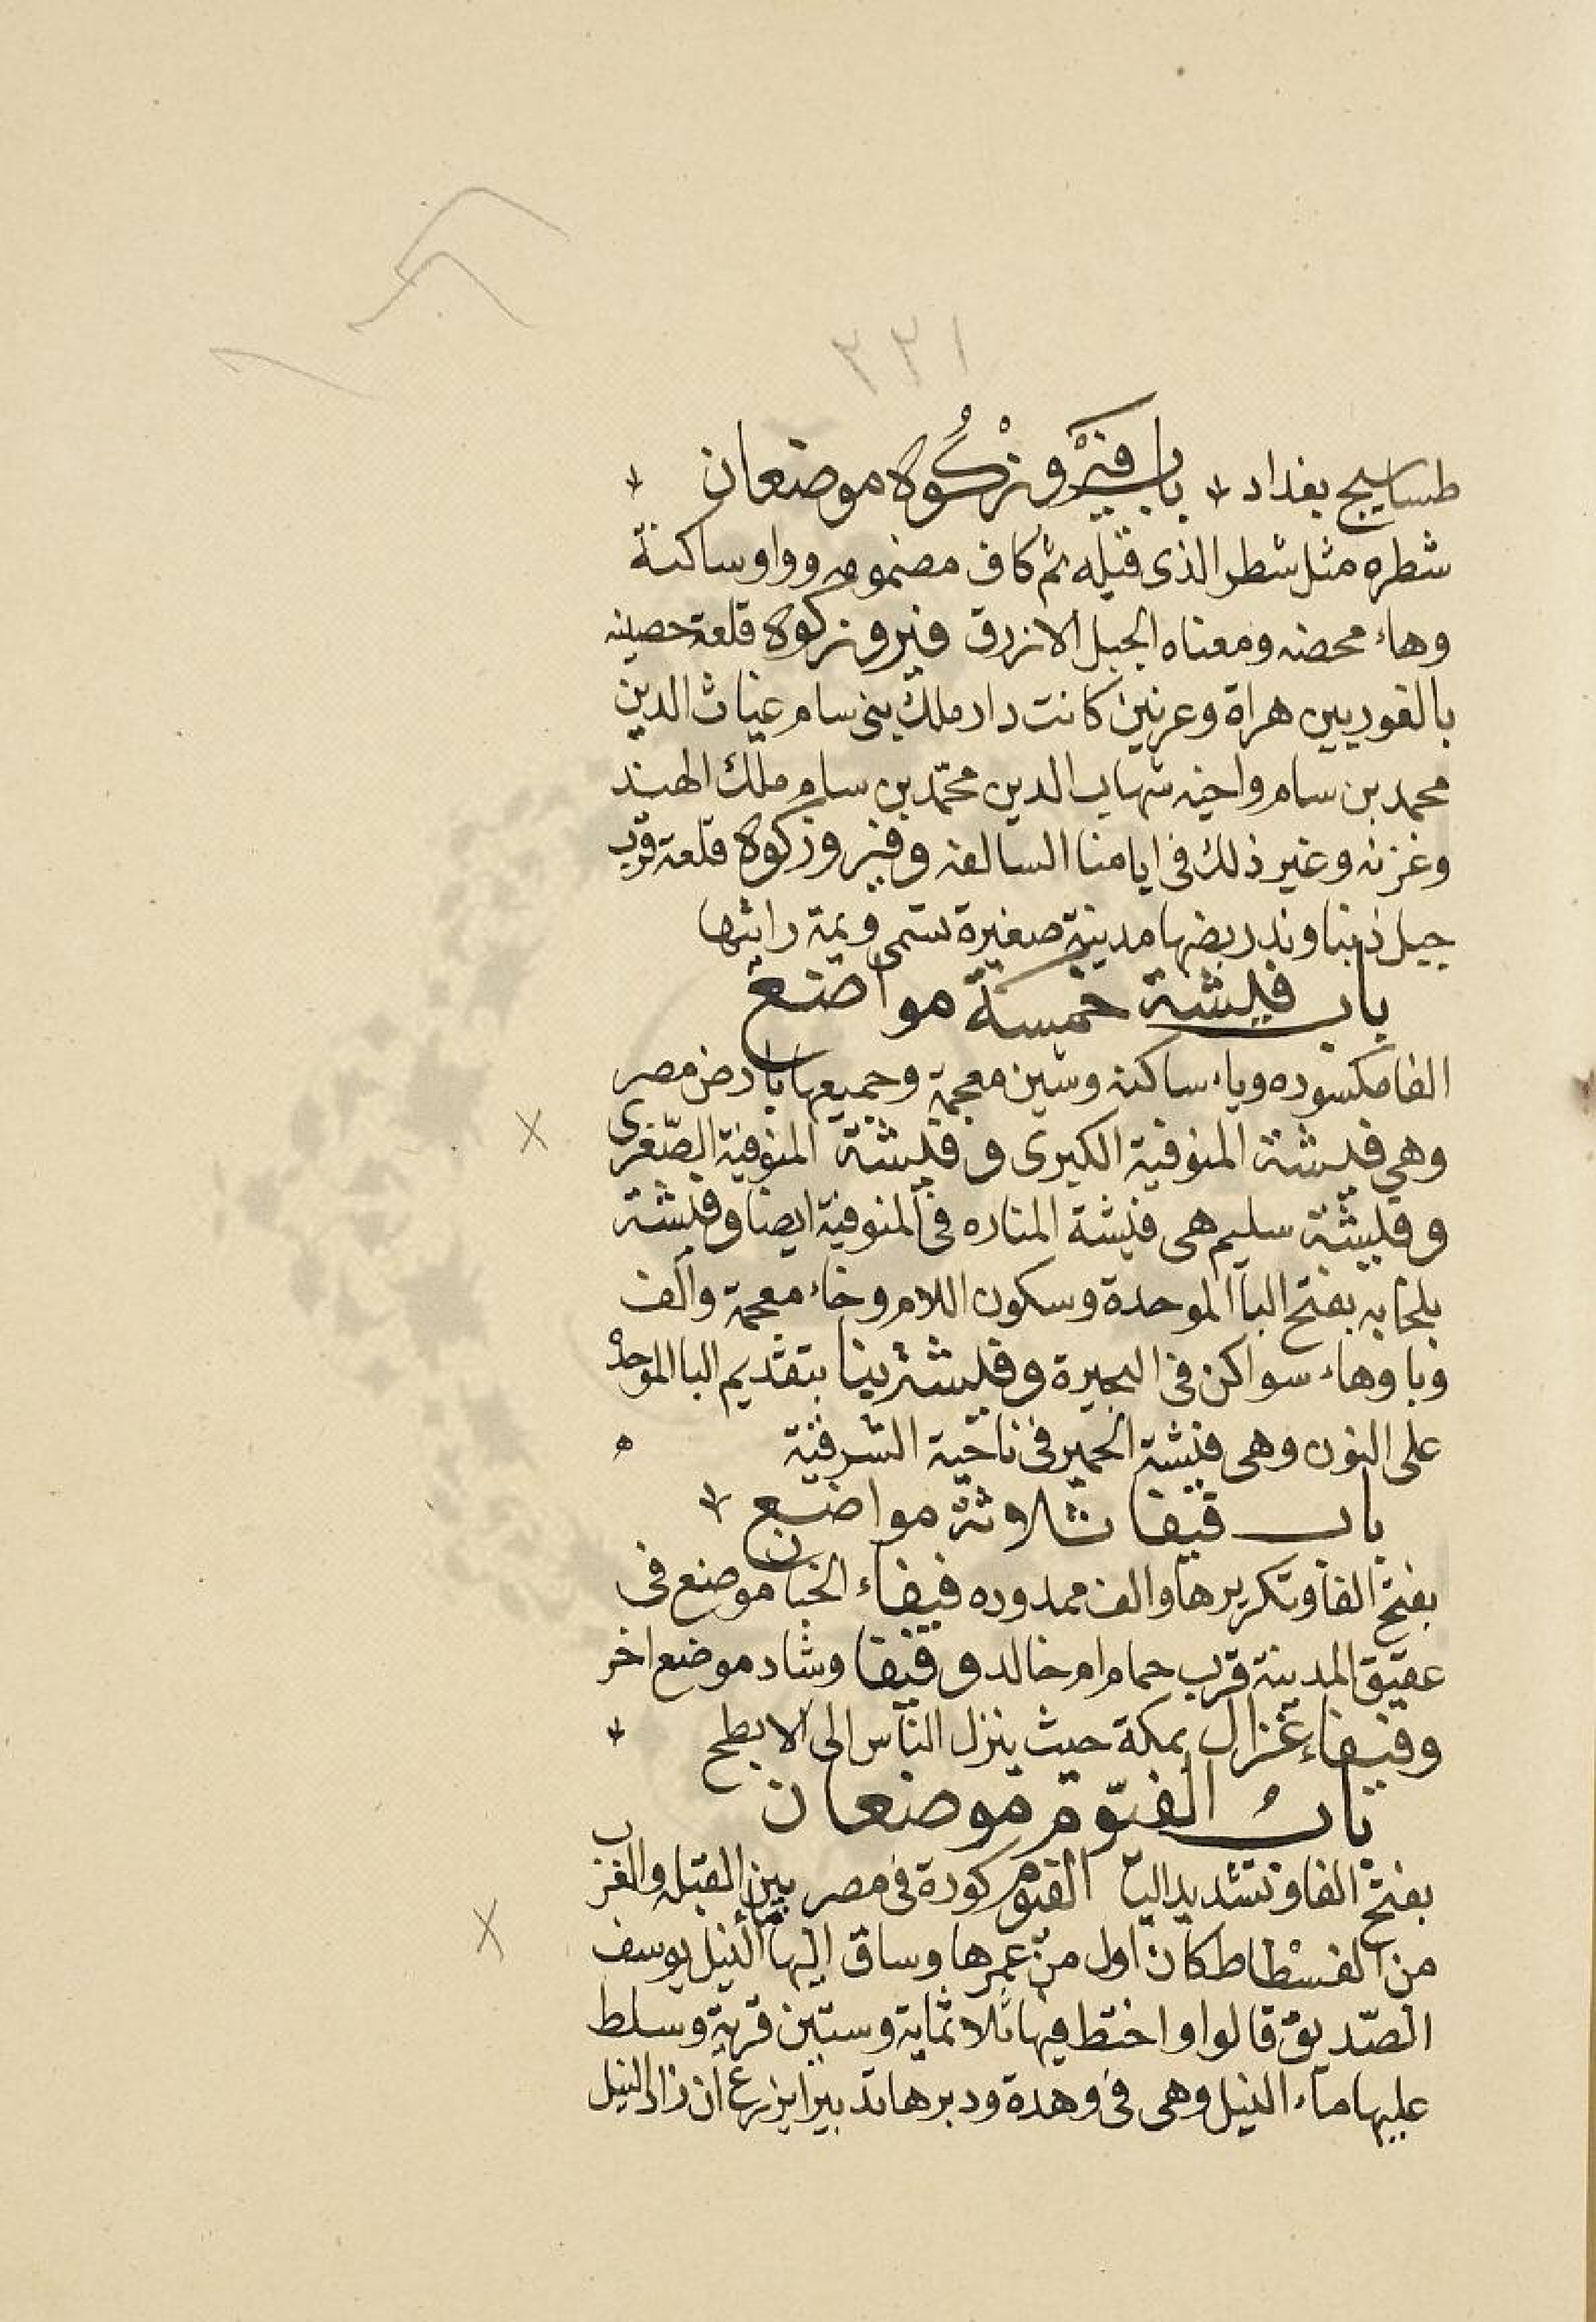 ٢٢١
طساسيج بغداد باب فَيْرُوزْكُوه موضعان
شطره مثل شطر الذى قبله ثم كاف مضمومه وواو ساكنة
وهاء محضه ومعناه الجبل الازرق فيروزكوه قلعة حصينه
بالغور بين هراة وغزنين كانت دار ملك بنى سام غياث الدين
محمد بن سام واخيه شهاب الدين محمّد بن سام ملك الهند
وغزنه وغير ذلك فى ايامنا السالفه وفيروزكوه قلعة قرب
جبل دنباوند ربضها مدينة صغيرة تسمى ويمة رايتها
باب فيشة خمسة مواضع
الفا مكسوره وياء ساكنه وشين معجمة وجميعها بارض مصر
وهي فيشة المنوفية الكبرى و فيشة المنوفية الصّغرى
و فيشة سليم هى فيشة المناره فى المنوفية ايضا وفيشة
بلخابه بفتح البا الموحدة وسكون اللام وخاء معجمة والف
وبا وهاء سواكن فى البحيرة وفيشة بنا بتقديم البا الموحدة
على النون وهى فيشة الحمير فى ناحية الشرقية ه
باب فيفا ثلاثة مواضع
بفتح الفا وتكريرها والف ممدوده فيفاء الخبار موضع فى
عقيق المدينة قرب حمام ام خالد و فيفا وشاد موضع اخر
وفيفاء غزال بمكة حيث ينزل الناس الى الابطح
باب الفيّوم موضعان
بفتح الفا وتشديد اليا الفيّوم كورة فى مصر بين القبله والغرب
من الفسطاط كان اول من عمرها وساق اليها ماء النيل يوسف
الصّديق قالوا واختط فيها ثلاثماية وستين قرية وسلط
عليها ماء النيل وهى فى وهدة ودبرها تدبيرا يزرع ان زاد النيل